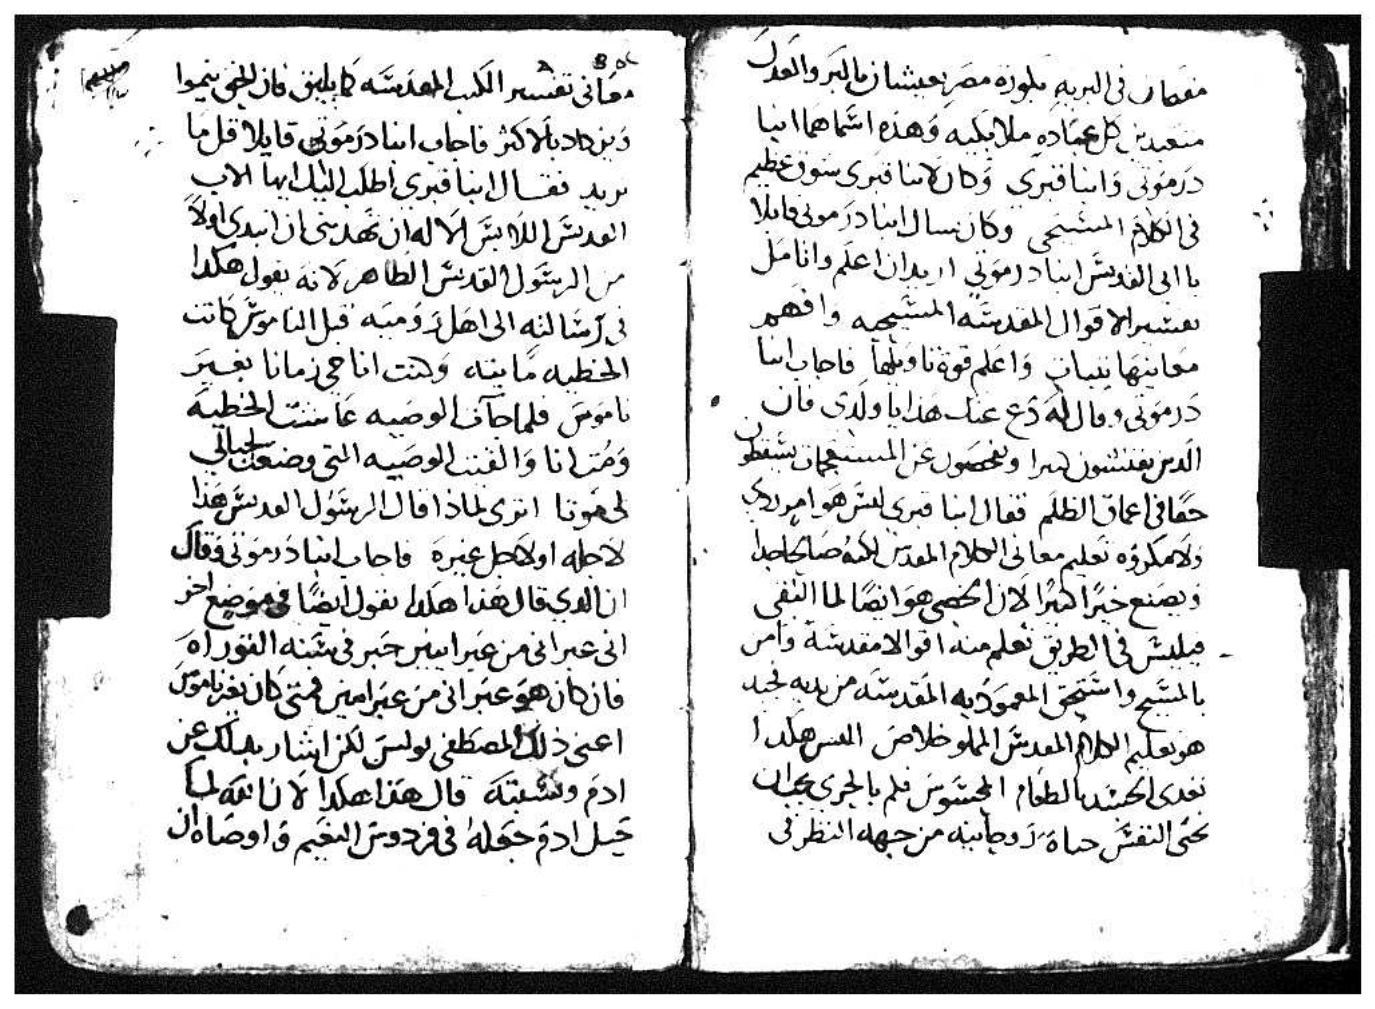 مقيمان في البريه بكورة مصر يعيشان بالبر والعدل
متعبدين كل عباده ملايكيه وهذه اسماهما انبا
درموتي وانبا قبري وكان لانبا قبري شوق عظيم
في الكلام المسيحي وكان يسال انبا درموتي قايلا
يا ابي القديس انبا درموتي اريد ان اعلم واتامل
تفسير الاقوال المقدسه المسيحيه وافهم
معانيها بتبات واعلم قوة تاويلها فاجاب انبا
درموتي وقال له دع عنك هذا يا ولدي فان
الدين يفتشون كثيرا ويفحصون عن يسقطون
حقا في اعماق الظلم فقال انبا قبري ليس هو امر ردي
ولا مكروه تعليم معاني الكلام المقدس لكنه صالحا جدا
ويصنع خيرا كثيرا لان الخصي هو ايضا لما التقى
فيلبس في الطريق تعلم منه اقوالا مقدسه وامن
بالمسيح واستحق المعموديه المقدسه من يديه لجيد
هو تعليم الكلام المقدس المملو خلاص النفس هكدا
تغدى الجسد بالطعام المحسوس فلم بالحري يجب ان
تحي النفس حياة روحانيه من جهه النظر في
معاني تفسير الكتب المقدسه كما يليق فان الحي ينموا
ويزداد بالاكثر فاجاب انبا درموتي قايلا قل ما
تريد فقال انبا قبري اطلب اليك ايها الاب
القديس اللابس الاله ان تهديني ان ابتدي اولا
من الرسول القديس الطاهر لانه يقول هكدا
في رسالته الى اهل روميه قبل الناموس كانت
الخطيه مايته وكنت انا حي زمانا بغير
ناموس فلما جآت الوصيه عاشت الخطيه
ومت انا والفيت الوصيه التي وضعت لحياتي
لي موتا اترى لماذا قال الرسول القديس هذا
لاجله او لاجل غيره فاجاب انبا درموتي وقال
ان الدي قال هذا هكدا يقول ايضا في موضع اخر
اني عبراني من عبرانيين حبر في سنه التوراه
فان كان هو عبراني من عبرانيين فمتى كان بغير ناموس
اعني ذلك المصطفى بولس لكن اشار بدلك عن
ادم ونسبته قال هذا هكدا لان الله لما
جبل ادم جعله في فردوس النعيم واوصاه ان